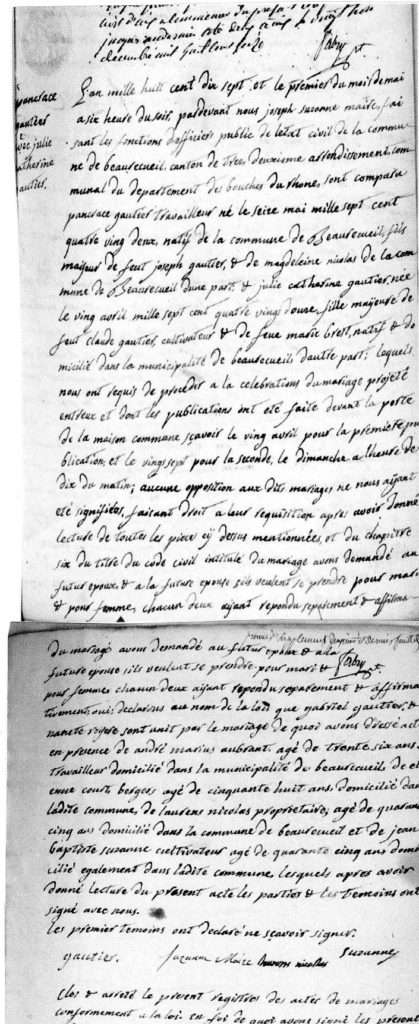 pancrace
gautier
julie
catherine
gautier.
L'an mille huit cent dix sept, et le premier du mois de mai
a six heure du soir, pardevant nous joseph suzanne maire, fai
sant les fonctions d'officier public de letat civil de la commu
ne de beaurecueil, canton de trets, deuxieme arrondissement com
munal du departement des bouches du rhone, sont comparu
pancrace gautier travailleur né le seize mai mille sept cent
quatre ving deux, natif de la commune de Beaurecueil, fils
majeur de feut joseph gautier, & de magdeleine nicolas de la com
mune de Beaurecueil dune part & julie catharine gautier, née
le ving avril mille sept cent quatre ving douze, fille majeure de
feut claude gautier, cultivateur & de feue marie brest, natif & do
micilié dans la municipalité de beaurecueil dautre part; lequels
nous ont requis de proceder a la celebrations du mariage projeté
entreux et dont les publications ont eté faite devant la porte
de la maison commune sçavoir le ving avril pour la premiere pu
blication, et le vingsept pour la seconde, le dimanche a lheure de
dix du matin; aucune opposition aux dits mariage ne nous aijant
eté signifiées, faisant droit a leur requisition apres avoir donné
lecture de toutes les pieces cy dessus mentionnées, et du chapitre
six du titre du code civil intitulé du mariage avons demandé au
futur epoux & a la future epouse sils veulent se prendre pour mari
& pour femme, chacun deux aijant repondu separement & affirma
du mariage avons demandé au futur epoux & a la
future epouse sils veulent se prendre pour mari &
pour femme, chacun deux aijant repondu separement & affirma
tivement, oui, declarons au nom de la loi que gabriel gautier, &
sont unit par le mariage de quoi avons dressé act
en presence de andré marius aubrant, agé de trente six ans
travailleur domicilié dans la municipalité de beaurecueil, de eti
enne court, berger agé de cinquante huit ans, domicilié dan
ladite commune, de laurens nicolas proprietaire, agé de quaran
cinq ans domicilié dans la commune de beaurecueil et de jean
baptiste suzanne cultivateur agé de quarante cinq ans domi
cilié egalement dans ladite commune, lesquels apres avoir
donné lecture du present acte les parties & les temoins ont
signé avec nous.
les premier temoins ont declaré ne sçavoir signer.
gautier. suzanne Maire laurens nicolas suzanne
Clos & arreté le present registres des actes de mariages
conformement a la loi. en foi de quoi avons signé les present